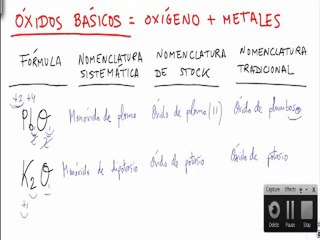 ÓXIDOS BÁSICOS = OXÍGENO + METALES
FÓRMULA NOMENCLATURA SISTEMÁTICA NOMENCLATURA DE STOCK NOMENCLATURA TRADICIONAL
+2 +4
PbO Monóxido de plomo Óxido de plomo (II) Óxido de plumboso
2 2
K2O Monóxido de dipotasio Óxido de potasio Óxido de potasio
+1
Capture Effects
Delete Pause Stop